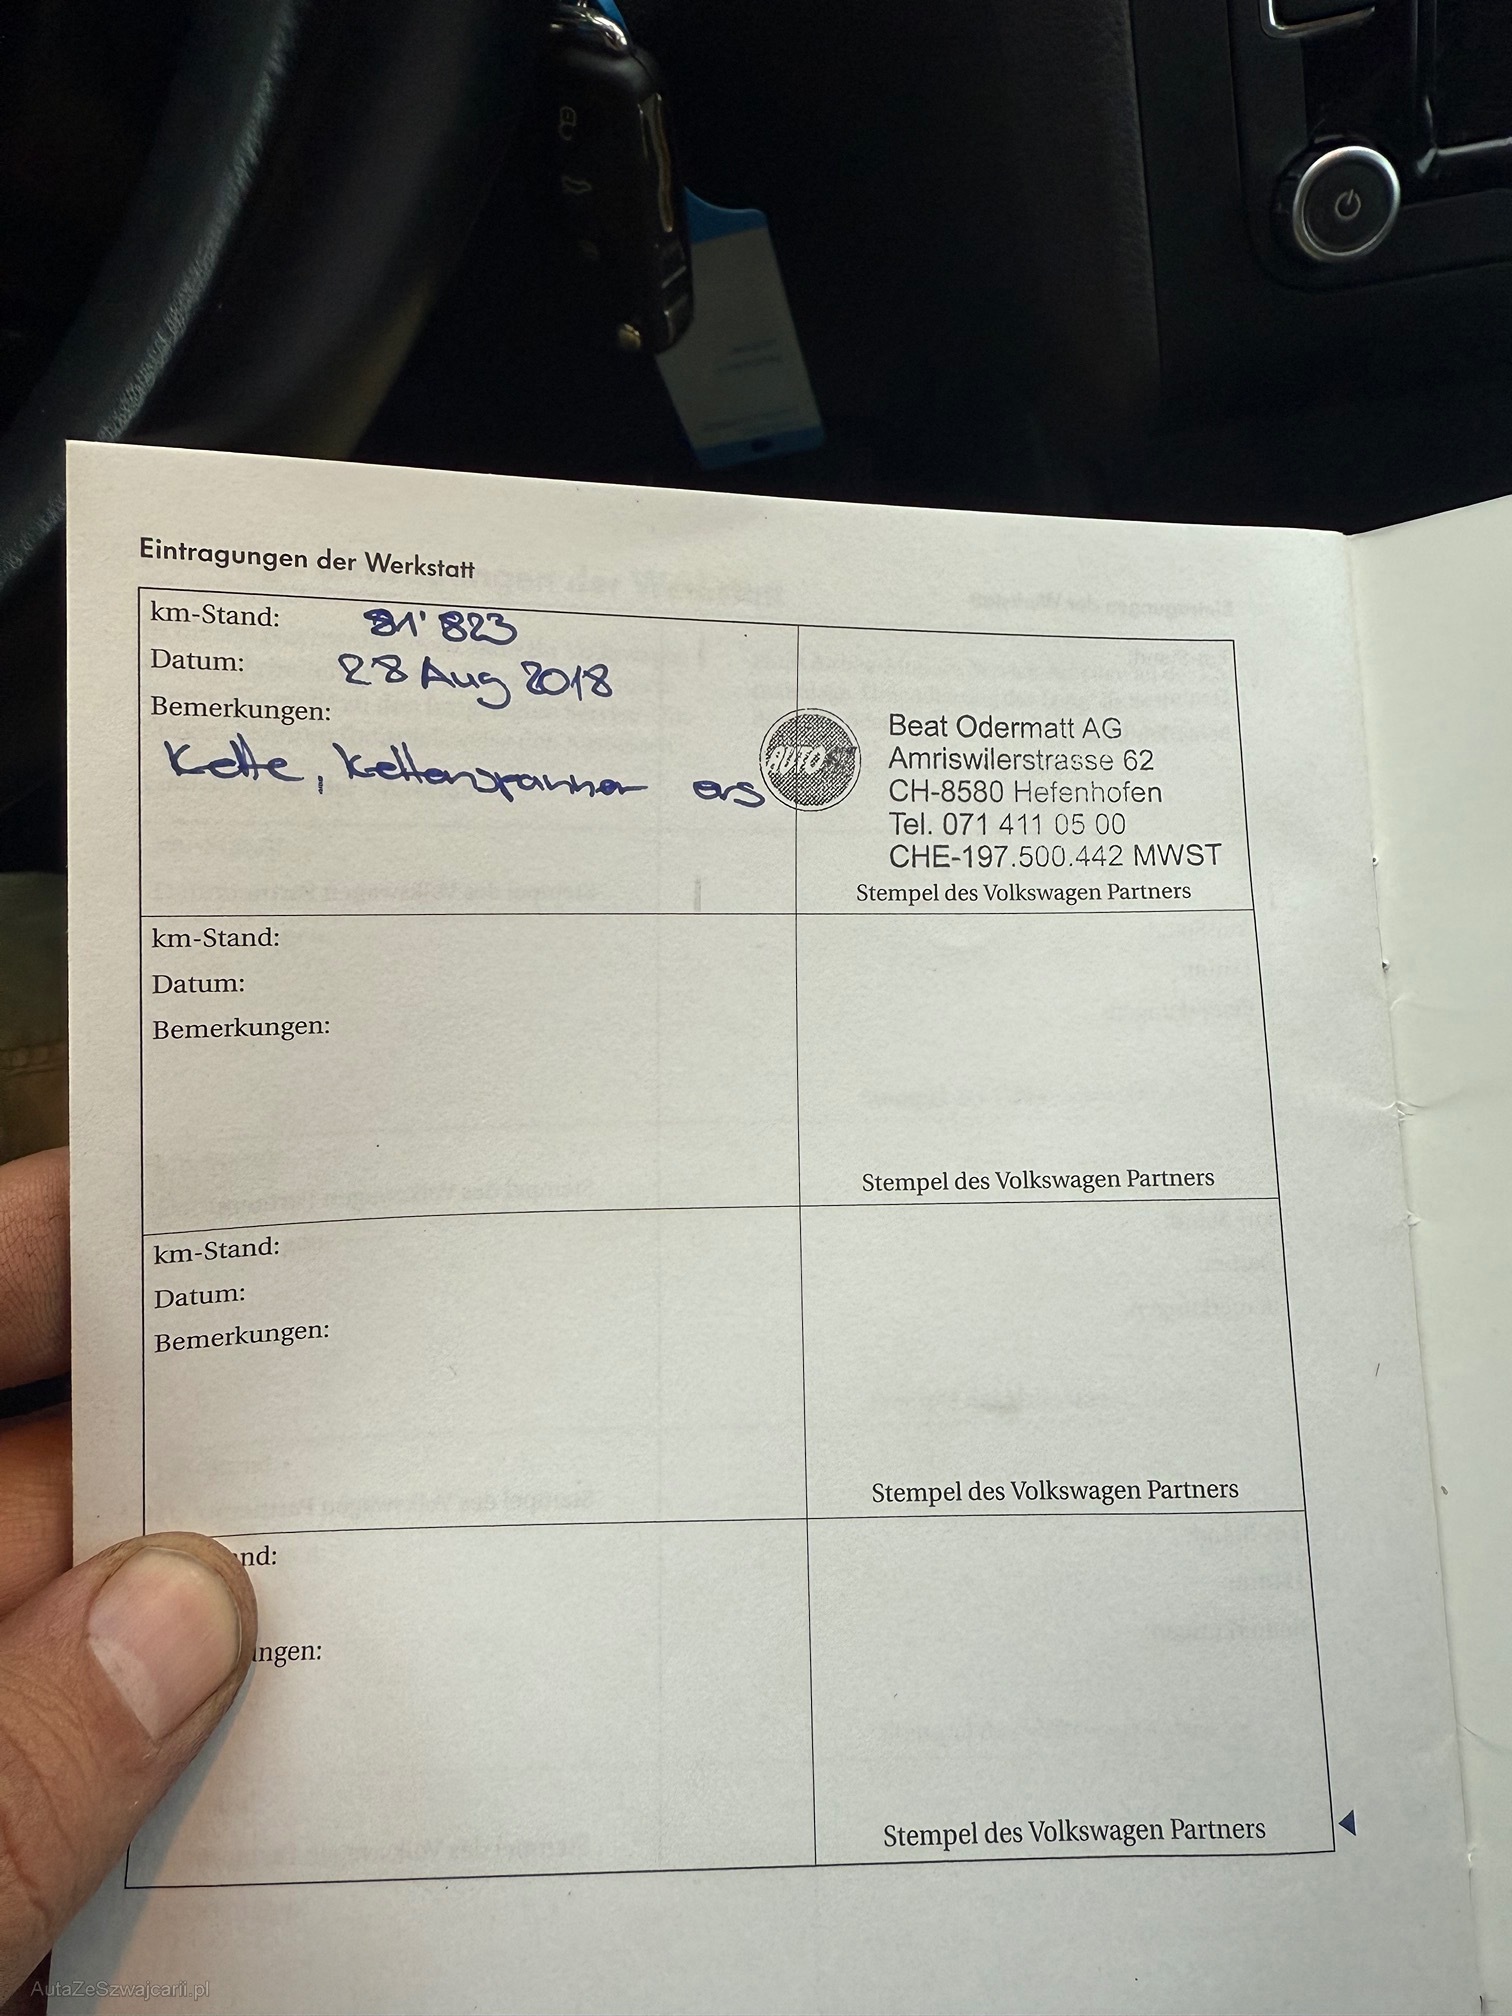 Eintragungen der Werkstatt
km-Stand: 81'823
Datum: 28 Aug 2018
Bemerkungen:
Kette, Kettenspanner ers
AUTO
Beat Odermatt AG
Amriswilerstrasse 62
CH-8580 Hefenhofen
Tel. 071 411 05 00
CHE-197.500.442 MWST
Stempel des Volkswagen Partners
km-Stand:
Datum:
Bemerkungen:
Stempel des Volkswagen Partners
km-Stand:
Datum:
Bemerkungen:
Stempel des Volkswagen Partners
nd:
ngen:
Stempel des Volkswagen Partners
AutaZeSzwajcarii.pl